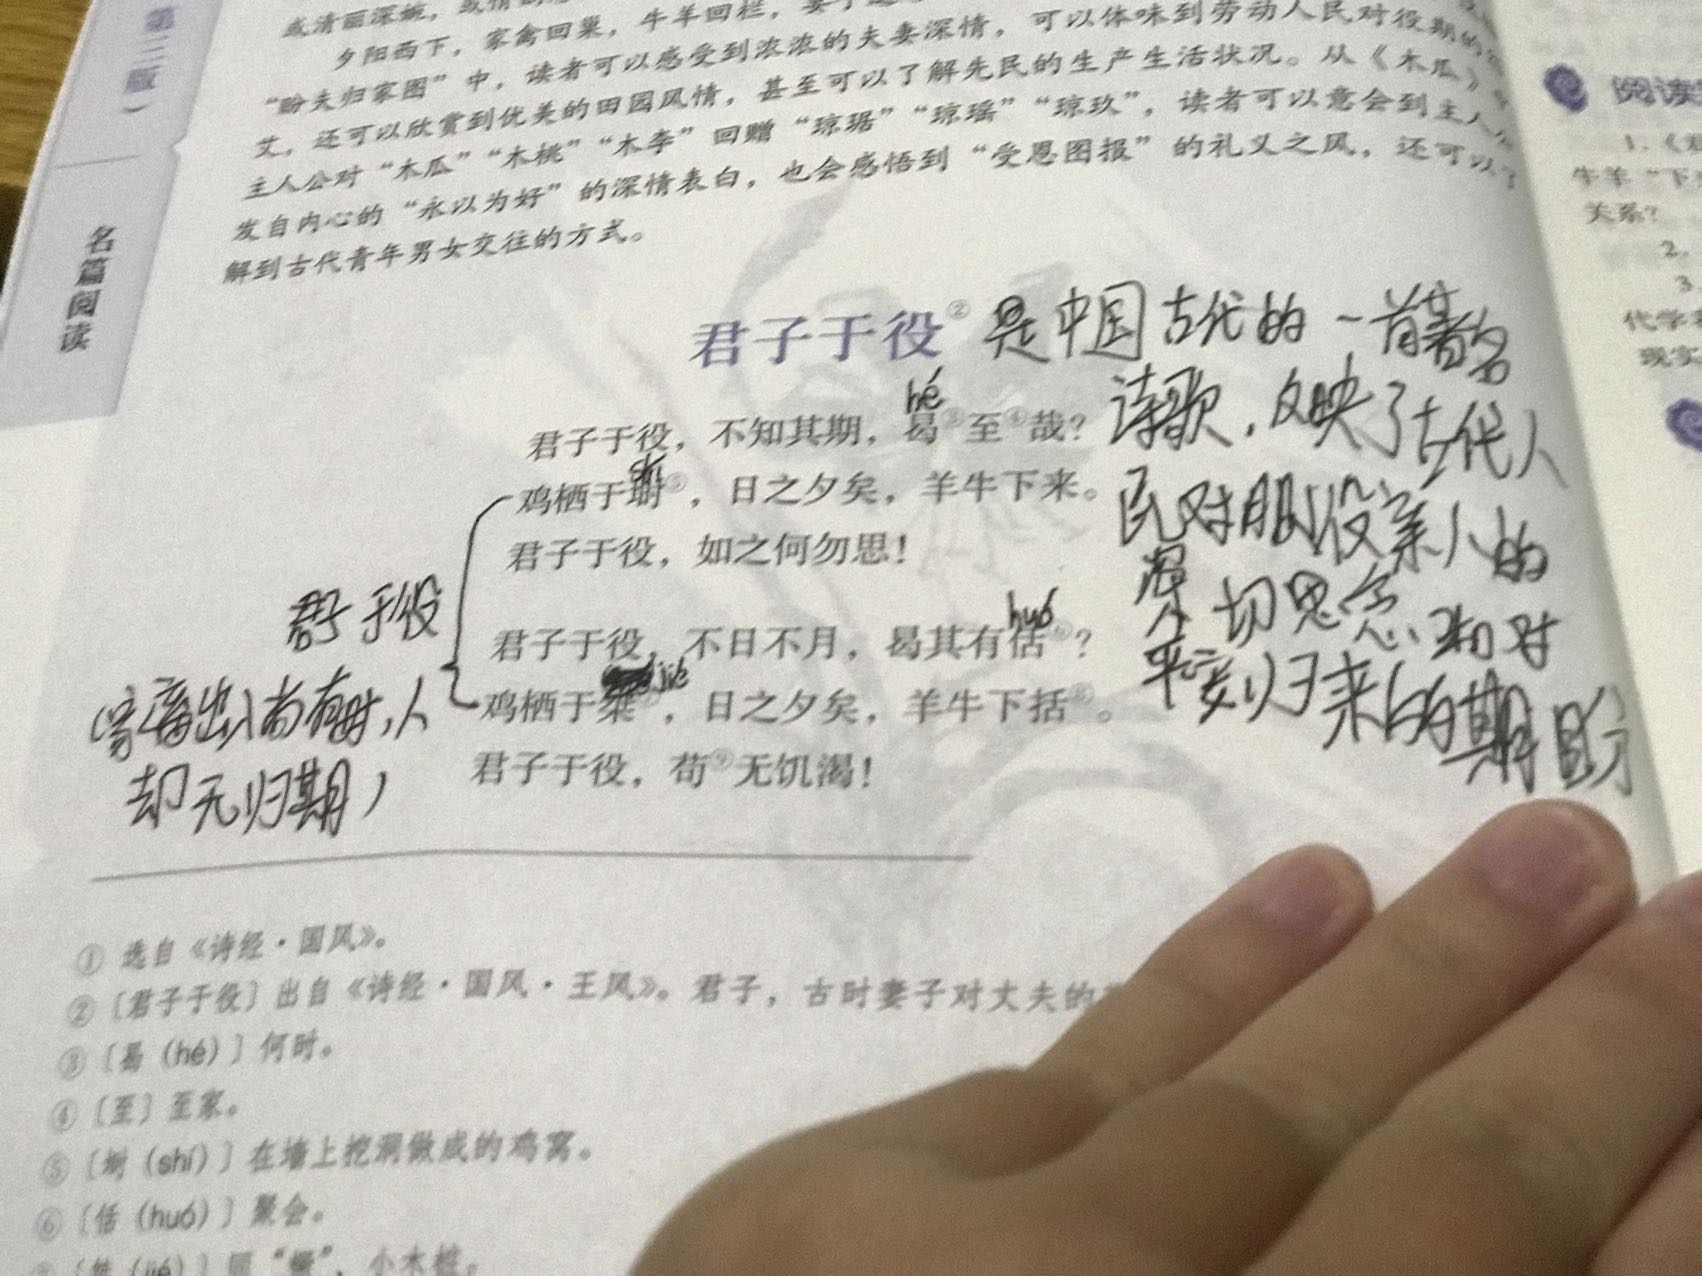 第三版
名篇阅读
夕阳西下，家禽回巢，牛羊回栏，
可以体味到劳动人民对役期的
“盼夫归家图”中，读者可以感受到浓浓的夫妻深情，
艾，还可以欣赏到优美的田园风情，甚至可以了解先民的生产生活状况。从《木瓜》
主人公对“木瓜”“木桃”“木李”回赠“琼琚”“琼瑶”“琼玖”，读者可以意会到主人公
发自内心的“永以为好”的深情表白，也会感悟到“受恩图报”的礼义之风，还可以了
解到古代青年男女交往的方式。
君子于役② 是中国古代的一首著名
诗歌，反映了古代人
民对服役亲人的
深切思念和对
平安归来的期盼
hé
君子于役，不知其期，曷③至④哉？
shí
鸡栖于埘⑤，日之夕矣，羊牛下来。
君子于役，如之何勿思！
huó
君子于役，不日不月，曷其有佸⑥？
jié
鸡栖于桀⑦，日之夕矣，羊牛下括⑧。
君子于役，苟⑨无饥渴！
君子于役
畜出入尚有时，人
却无归期
① 选自《诗经·国风》。
② 〔君子于役〕出自《诗经·国风·王风》。君子，古时妻子对丈夫的
③ 〔曷（hé）〕何时。
④ 〔至〕至家。
⑤ 〔埘（shí）〕在墙上挖洞做成的鸡窝。
⑥ 〔佸（huó）〕聚会。
〔桀（jié）〕同“橛”，小木桩。
阅读
1.《君
牛羊“下
关系？
2.
3.
代学
现实